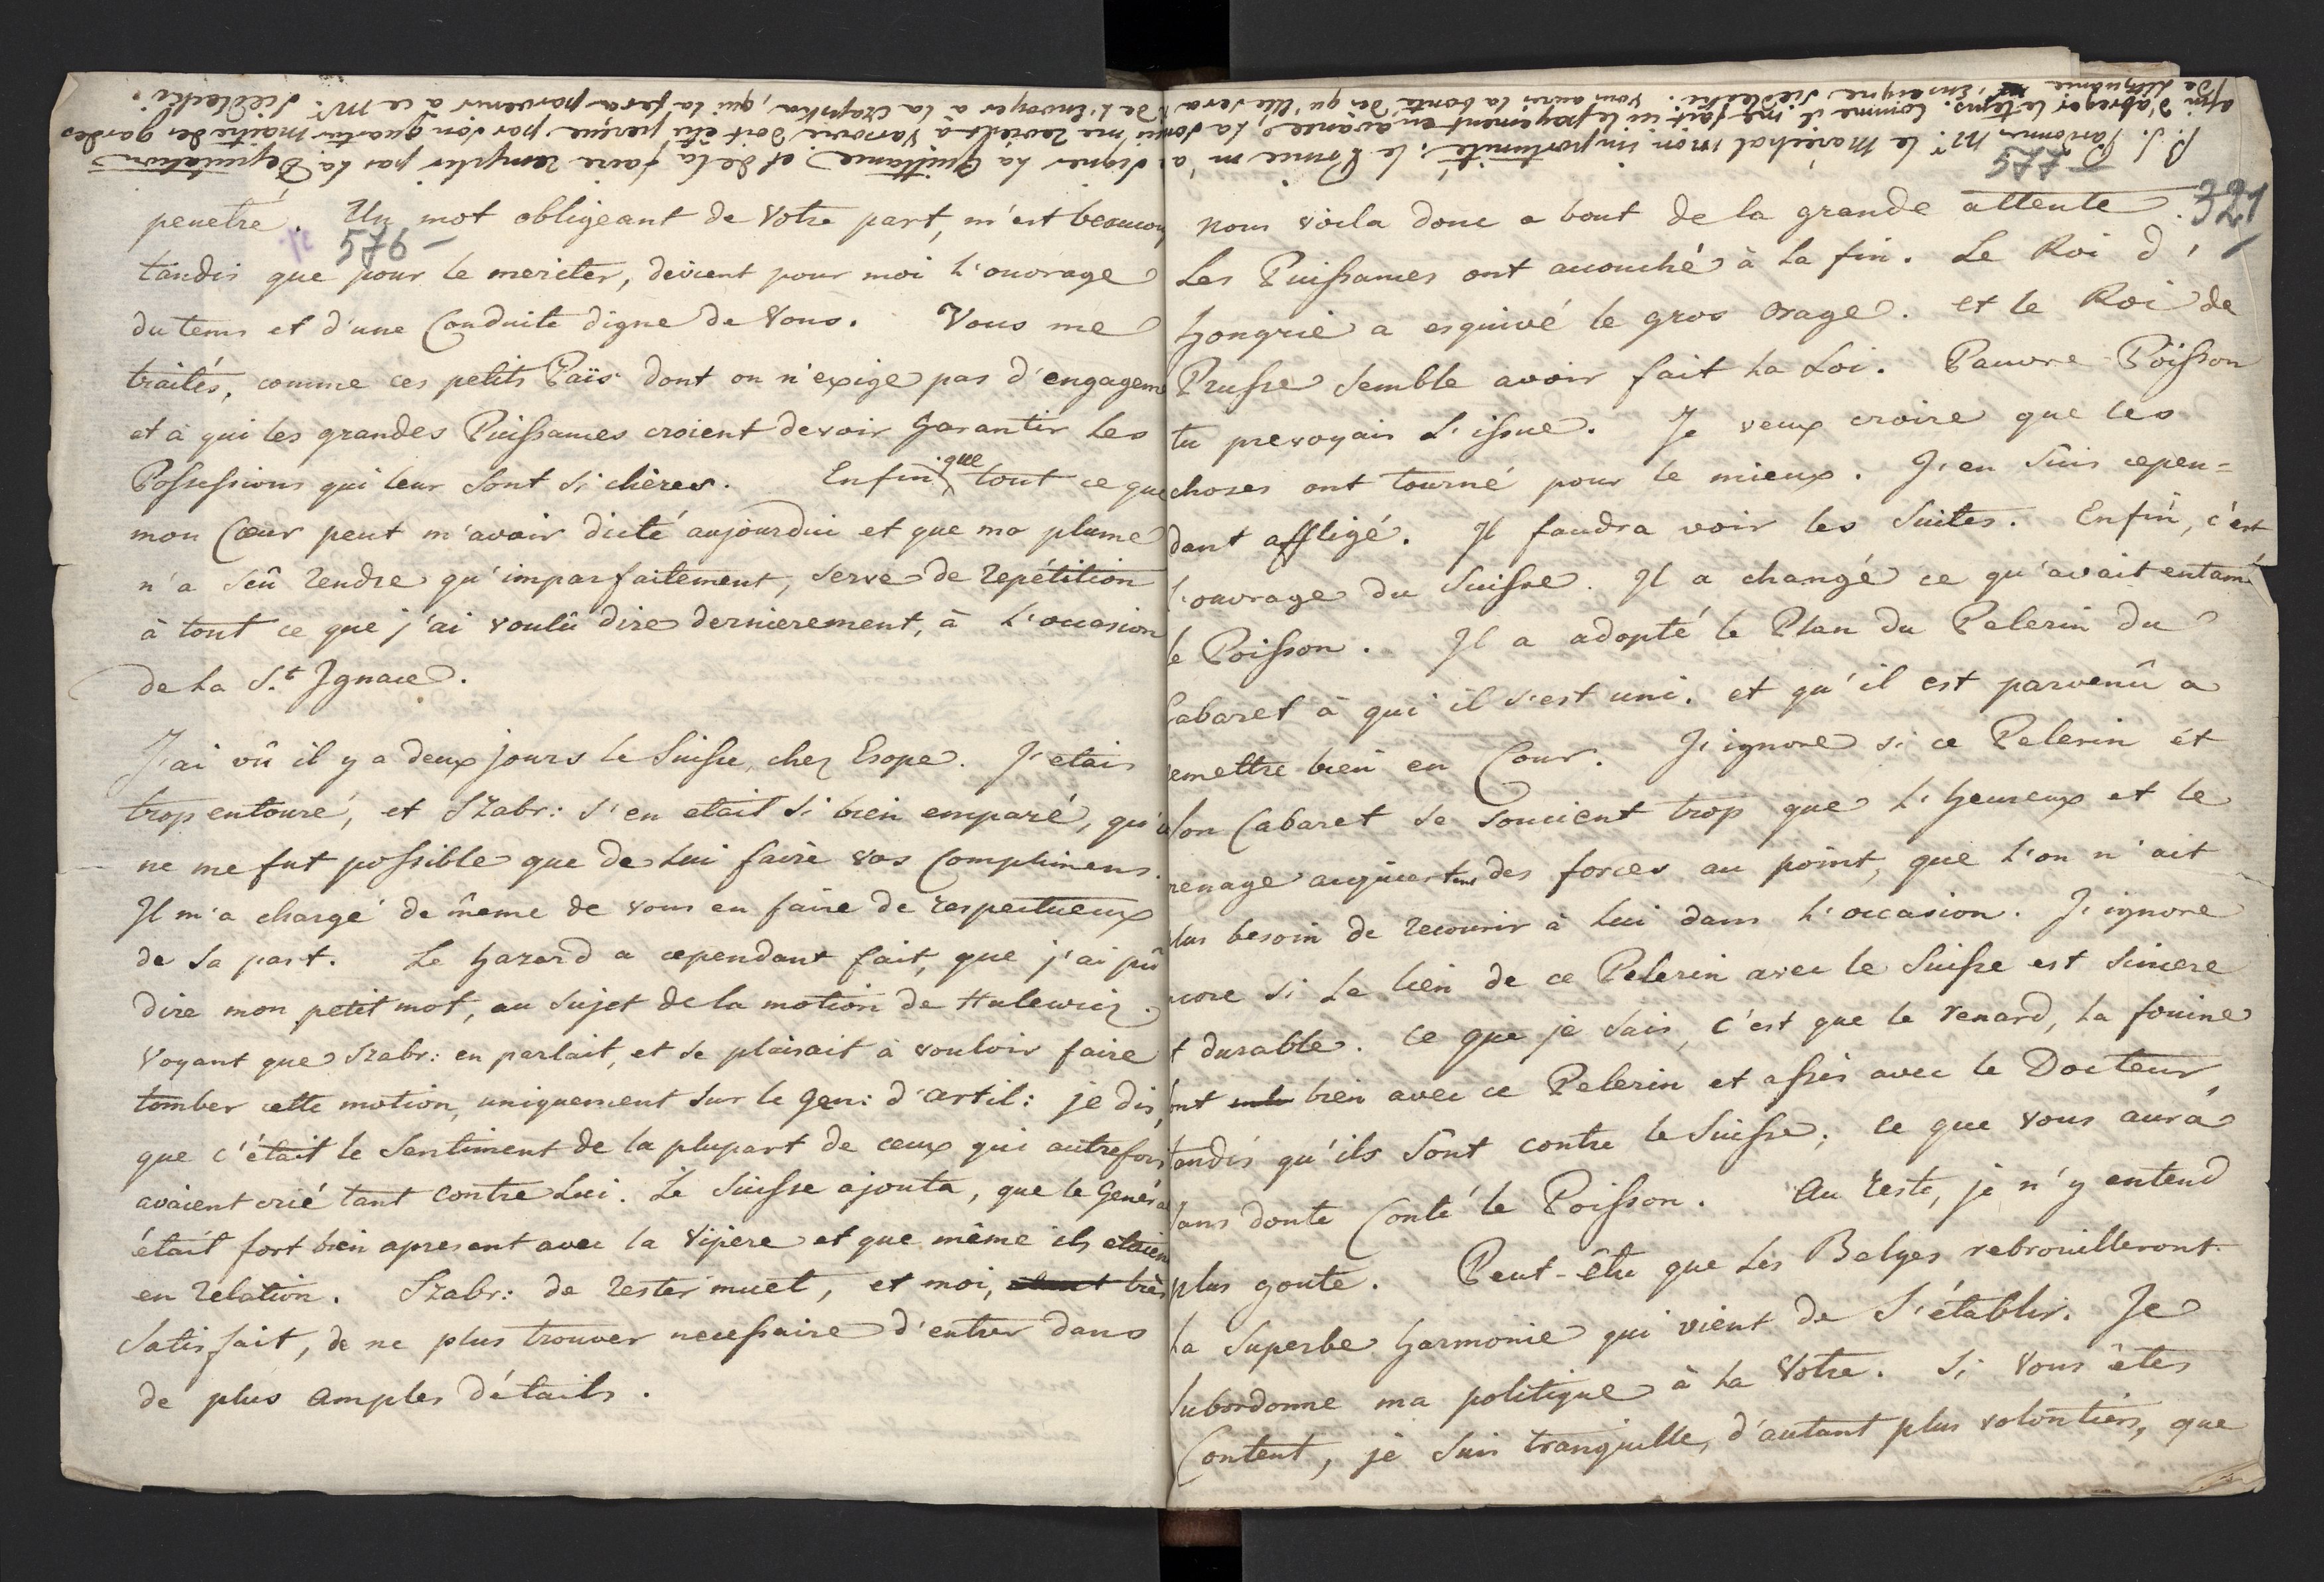 penetré. Un mot obligeant de Votre part, m'est beaucoup
576
tandis que pour le meriter, devient pour moi l'ouvrage
du tems et d'une Conduite digne de Vous. Vous me
traités, comme ces petits Païs dont on n'exige pas d'engageme
et à qui les grandes Puissances croient devoir garantir les
Possessions qui leur sont si chères. Enfin que tout ce que
mon Cœur peut m'avoir dicté aujourdui et que ma plume
n'a seû rendre qu'imparfaitement, serve de repétition
à tout ce que j'ai voulû dire dernierement, à l'occasion
de la St. Ignace.
J'ai vû il y a deux jours le Suisse, chez Esope. J'etais
trop entouré, et Szabr: s'en etait si bien emparé, qu'il
ne me fut possible que de lui faire vos Complimens.
Il m'a chargé de même de vous en faire de respectueux
de sa part. Le hazard a cependant fait, que j'ai pû
dire mon petit mot, au sujet de la motion de Hulewicz.
Voyant que Szabr: en parlait, et se plaisait à vouloir faire
tomber cette motion, uniquement sur le Gen: d'artil: je dis,
que c'était le Sentiment de la plupart de ceux qui autrefois
avaient crié tant contre Lui. Le Suisse ajouta, que le Genéral
était fort bien apresent avec la Vipere et que même ils etaient
en relation. Szabr: de rester muet, et moi, très
Satisfait, de ne plus trouver necessaire d'entrer dans
de plus amples détails.
P. S. Pardonnez Mr. le Maréchal mon importunité; le Prince m'a
signer la Quittance et de là faire remplir par la Deputation
577
321
nous voila donc a bout de la grande attente.
Les Puissances ont accouché à la fin. Le Roi d'
hongrie a esquivé le gros orage. et le Roi de
Prusse semble avoir fait la Loi. Pauvre Poisson
tu prevoyais l'issue. Je veux croire que les
choses ont tourné pour le mieux. J'en suis cepen=
dant affligé. Il faudra voir les suites. Enfin, c'est
l'ouvrage du Suisse. Il a changé ce qu'avait entamé
le Poisson. Il a adopté le Plan du Pelerin du
Cabaret à qui il s'est uni. et qu'il est parvenû a
remettre bien en Cour. J'ignore si ce Pelerin et
son Cabaret se soucient trop que l'heureux et le
menage acquierent des forces au point, que l'on n'ait
plus besoin de recourir à lui dans l'occasion. J'ignore
encore si le lien de ce Pelerin avec le Suisse est sincere
et durable. Ce que je sais, c'est que le renard, la fouine
sont bien avec ce Pelerin et assés avec le Docteur,
tandis qu'ils sont contre le Suisse; ce que vous aura
sans doute Conté le Poisson. Au reste, je n'y entend
plus goute. Peut-être que les Belges rebrouilleront
la superbe harmonie qui vient de s'établir. Je
subordonne ma politique à la Votre. Si vous êtes
Content, je suis tranquille, d'autant plus volontiers, que